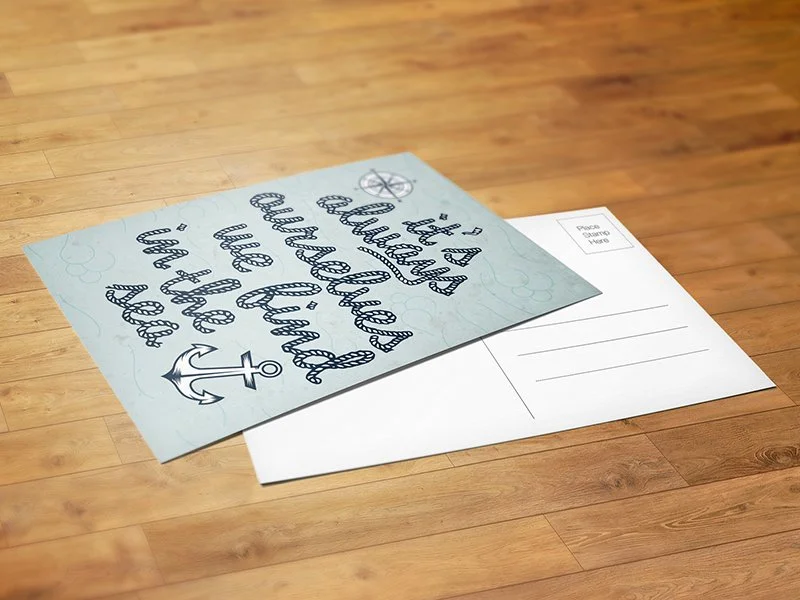 it's
always
ourselves
we find
in the
sea
Place
Stamp
Here